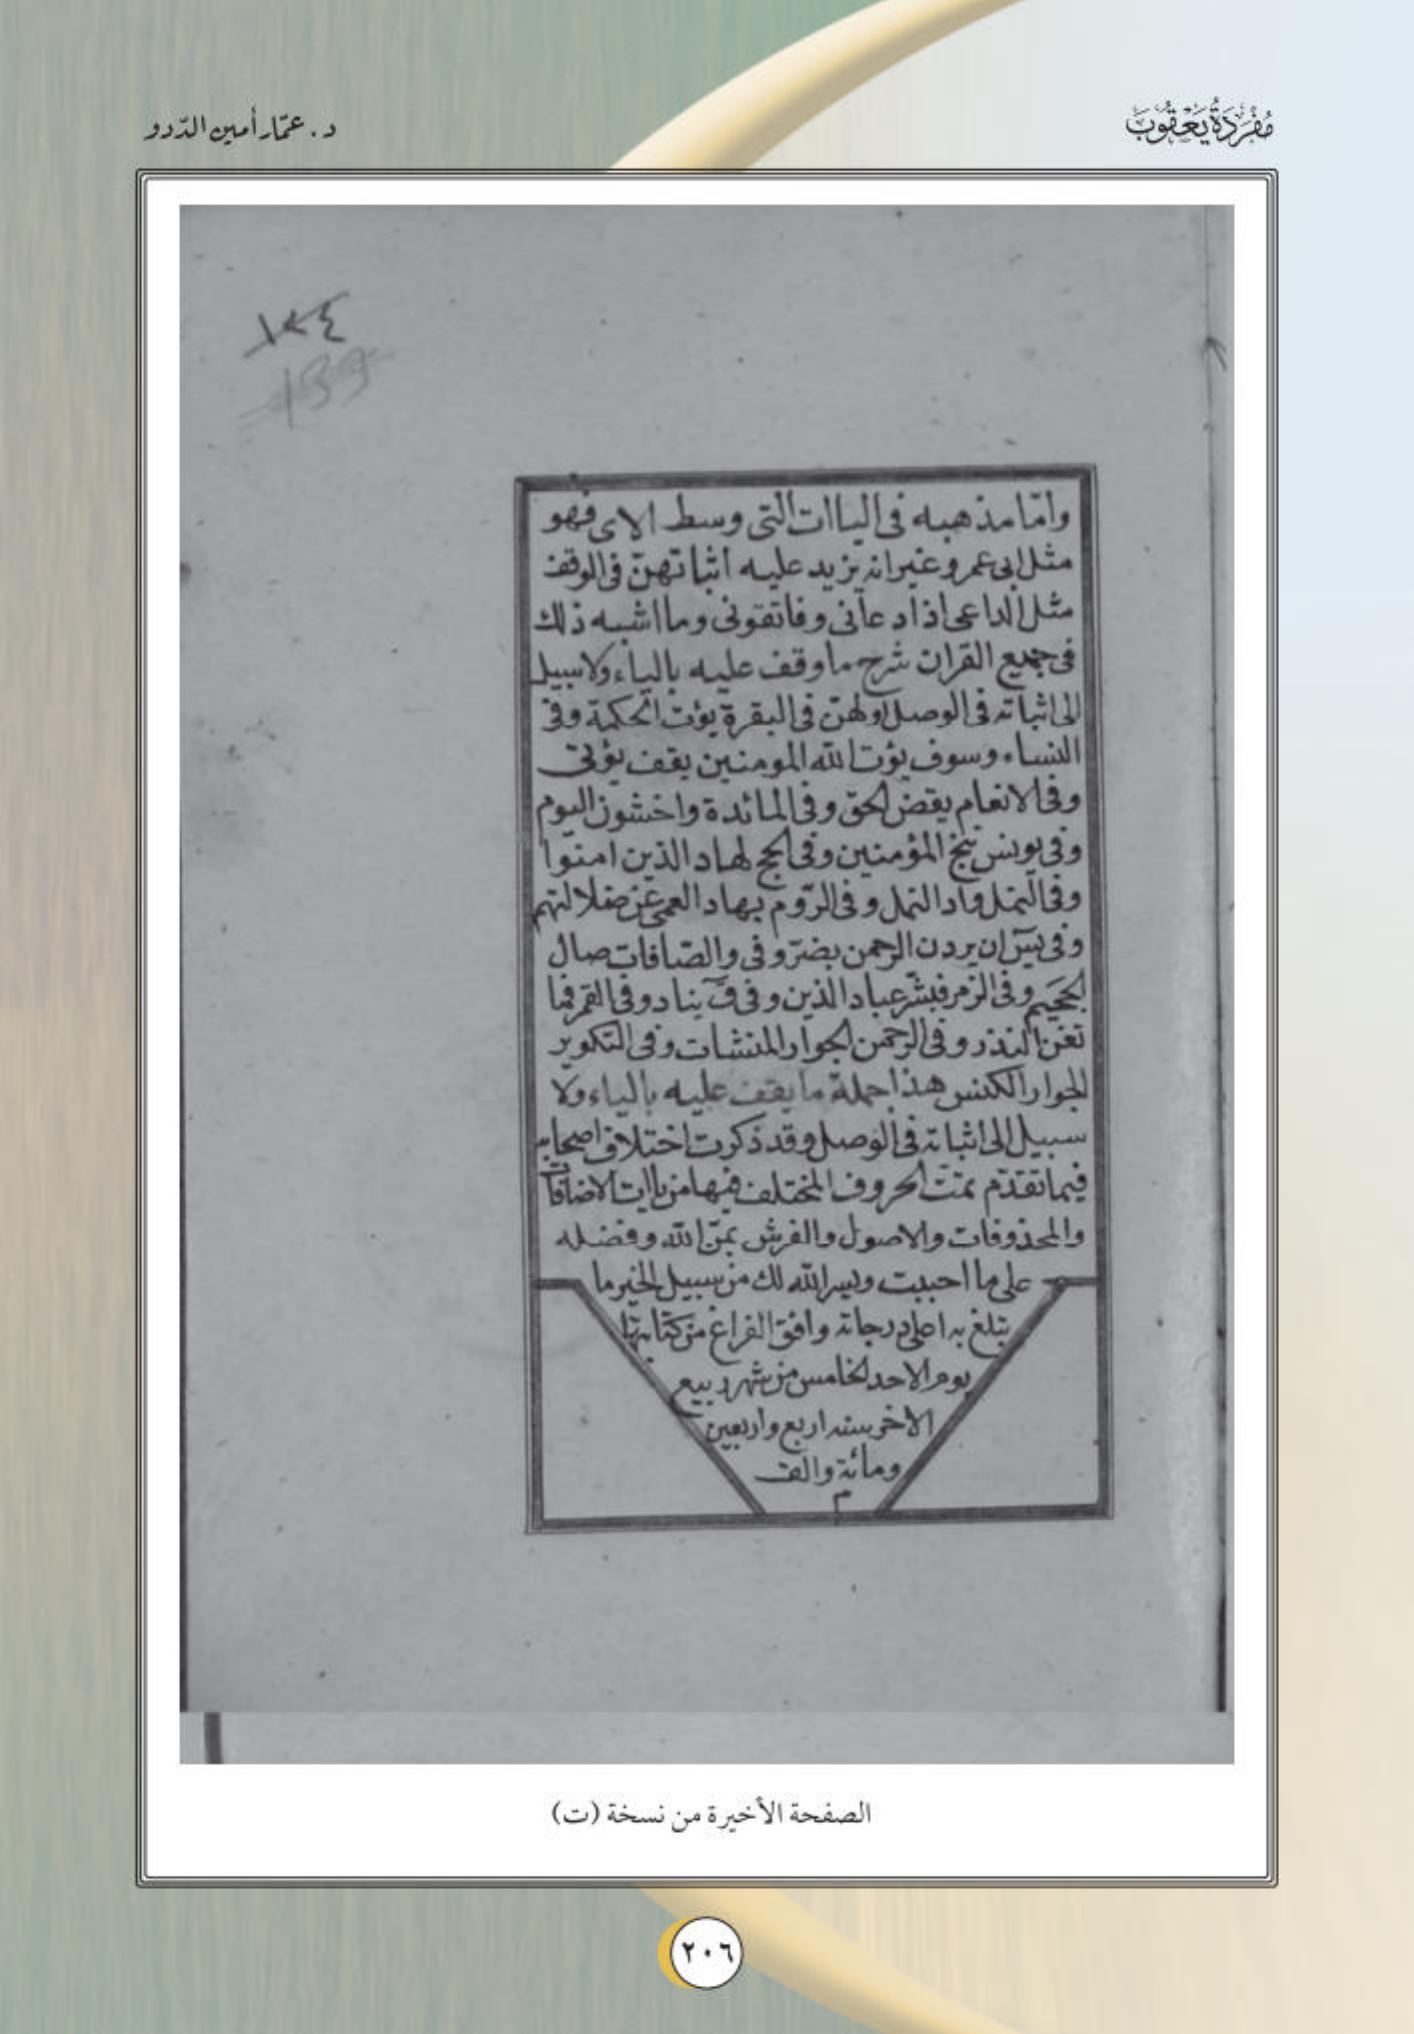 مُفْرَدَةُ يَعْقُوبَ
د. عمّار أمين الدّدو
١٣٤
139
وامّا مذهبه فى الياات التى وسط الاى فهو
مثل ابى عمرو غير انه يزيد عليه اثباتهنّ فى الوقف
مثل الداعى اذا دعانى وفاتقونى وما اشبه ذلك
فى جميع القران شرح ما وقف عليه بالياء ولا سبيل
الى اثباته فى الوصل اولهنّ فى البقرة يؤت الحكمة وفى
النساء وسوف يؤت الله المومنين يقف يؤتى
وفى الانعام يقض الحق وفى المائدة واخشون اليوم
وفى يونس ننج المؤمنين وفى الحج لهاد الذين امنوا
وفى النمل واد النمل وفى الرّوم بهاد العمى عن ضلالتهم
وفى يسٓ ان يردن الرحمن بضرّ وفى والصّافات صال
الجحيم وفى الزمر فبشّر عباد الذين وفى قٓ يناد وفى القمر فما
تغن النذر وفى الرحمن الجوار المنشات وفى التكوير
الجوار الكنس هذا جملة ما يقف عليه بالياء ولا
سبيل الى اثباته فى الوصل وقد ذكرت اختلاف اصحابه
فيما تقدّم تمّت الحروف المختلف فيها من ياات الاضافات
والمحذوفات والاصول والفرش بمنّ الله وفضله
على ما احببت ويسر الله لك من سبيل الخير ما
تبلغ به اعلى درجاته وافق الفراغ من كتابتها
يوم الاحد الخامس من شهر ربيع
الاخر سنه اربع واربعين
ومائة والف
م
الصفحة الأخيرة من نسخة (ت)
٢٠٦